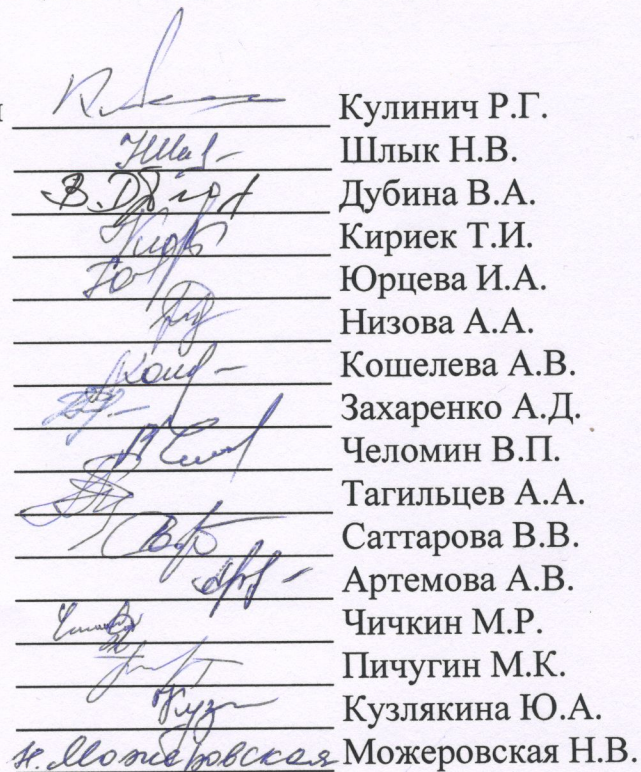 Кулинич Р.Г.
Шлык Н.В.
В.Д Дубина В.А.
Кириек Т.И.
Юрцева И.А.
Низова А.А.
Кошелева А.В.
Захаренко А.Д.
Челомин В.П.
Тагильцев А.А.
Саттарова В.В.
Артемова А.В.
Чичкин М.Р.
Пичугин М.К.
Кузлякина Ю.А.
н. Можеровская Можеровская Н.В.